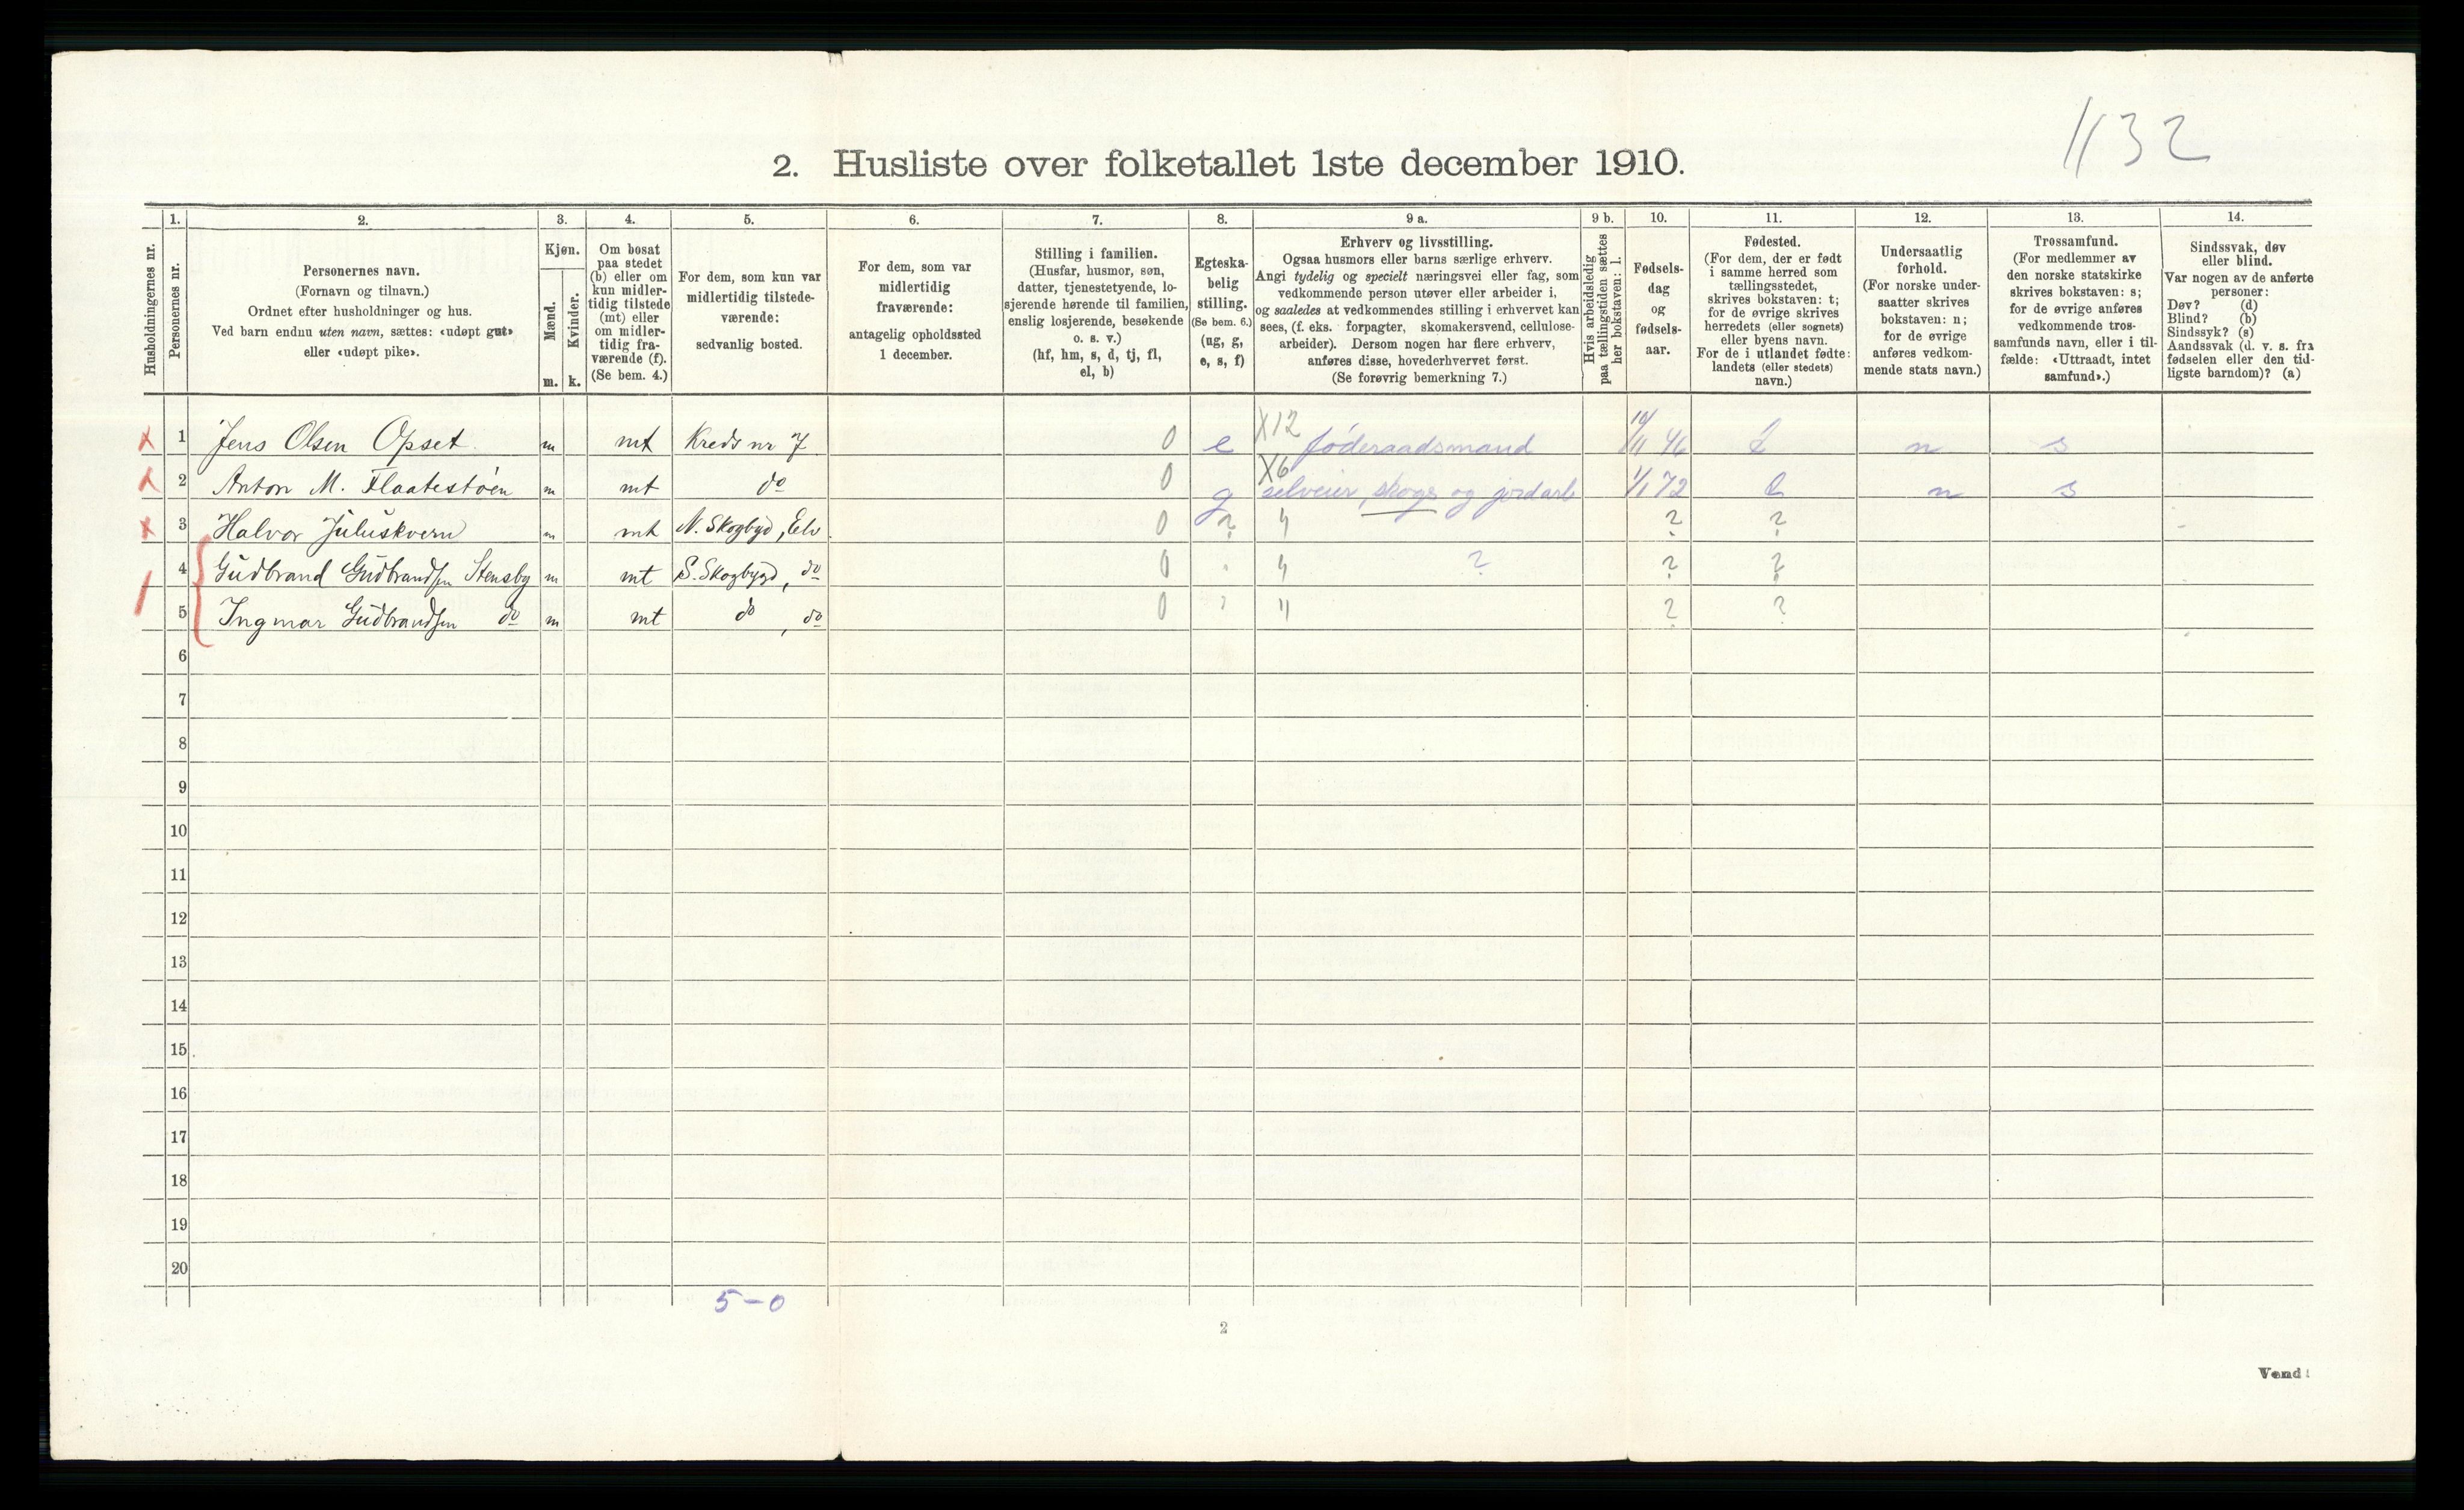 1132
2. Husliste over folketallet 1ste december 1910.
1. 2. 3. 4. 5. 6. 7. 8. 9 a. 9 b. 10. 11. 12. 13. 14.
Husholdningernes nr.
Personernes nr.
Personernes navn.
(Fornavn og tilnavn.)
Ordnet efter husholdninger og hus.
Ved barn endnu uten navn, sættes: «udøpt gut»
eller «udøpt pike».
Kjøn.
Mænd.
Kvinder.
m. k.
Om bosat
paa stedet
(b) eller om
kun midler-
tidig tilstede
(mt) eller
om midler-
tidig fra-
værende (f).
(Se bem. 4.)
For dem, som kun var
midlertidig tilstede-
værende:
sedvanlig bosted.
For dem, som var
midlertidig
fraværende:
antagelig opholdssted
1 december.
Stilling i familien.
(Husfar, husmor, søn,
datter, tjenestetyende, lo-
sjerende hørende til familien,
enslig losjerende, besøkende
o. s. v.)
(hf, hm, s, d, tj, fl,
el, b)
Egteska-
belig
stilling.
(Se bem. 6.)
(ug, g,
e, s, f)
Erhverv og livsstilling.
Ogsaa husmors eller barns særlige erhverv.
Angi tydelig og specielt næringsvei eller fag, som
vedkommende person utøver eller arbeider i,
og saaledes at vedkommendes stilling i erhvervet kan
sees, (f. eks. forpagter, skomakersvend, cellulose-
arbeider). Dersom nogen har flere erhverv,
anføres disse, hovederhvervet først.
(Se forøvrig bemerkning 7.)
Hvis arbeidsledig
paa tællingstiden sættes
her bokstaven: l.
Fødsels-
dag
og
fødsels-
aar.
Fødested.
(For dem, der er født
i samme herred som
tællingsstedet,
skrives bokstaven: t;
for de øvrige skrives
herredets (eller sognets)
eller byens navn.
For de i utlandet fødte:
landets (eller stedets)
navn.)
Undersaatlig
forhold.
(For norske under-
saatter skrives
bokstaven: n;
for de øvrige
anføres vedkom-
mende stats navn.)
Trossamfund.
(For medlemmer av
den norske statskirke
skrives bokstaven: s;
for de øvrige anføres
vedkommende tros-
samfunds navn, eller i til-
fælde: «Uttraadt, intet
samfund».)
Sindssvak, døv
eller blind.
Var nogen av de anførte
personer:
Døv? (d)
Blind? (b)
Sindssyk? (s)
Aandssvak (d. v. s. fra
fødselen eller den tid-
ligste barndom)? (a)
x 1 Jens Olsen Opset. m mt Kreds nr 7 0 e X12 føderaadsmand 10/11 46 t n s
x 2 Anton M. Flaatestøen m mt do 0 g X6 selveier, skogs og jordarb 1/1 72 t n s
x 3 Halvor Juluskvern m mt N. Skogbyd, Elv. 0 ? " ? ?
4 Gudbrand Gudbrandsen Stensby m mt S. Skogbygd, do 0 " ? ? ?
5 Ingmar Gudbrandsen do m mt do, do 0 " ? ?
6
7
8
9
10
11
12
13
14
15
16
17
18
19
20
5-0
2
Vend!